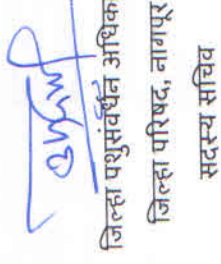 जिल्हा पशुसंवर्धन अधिका
जिल्हा परिषद, नागपूर
सदस्य सचिव